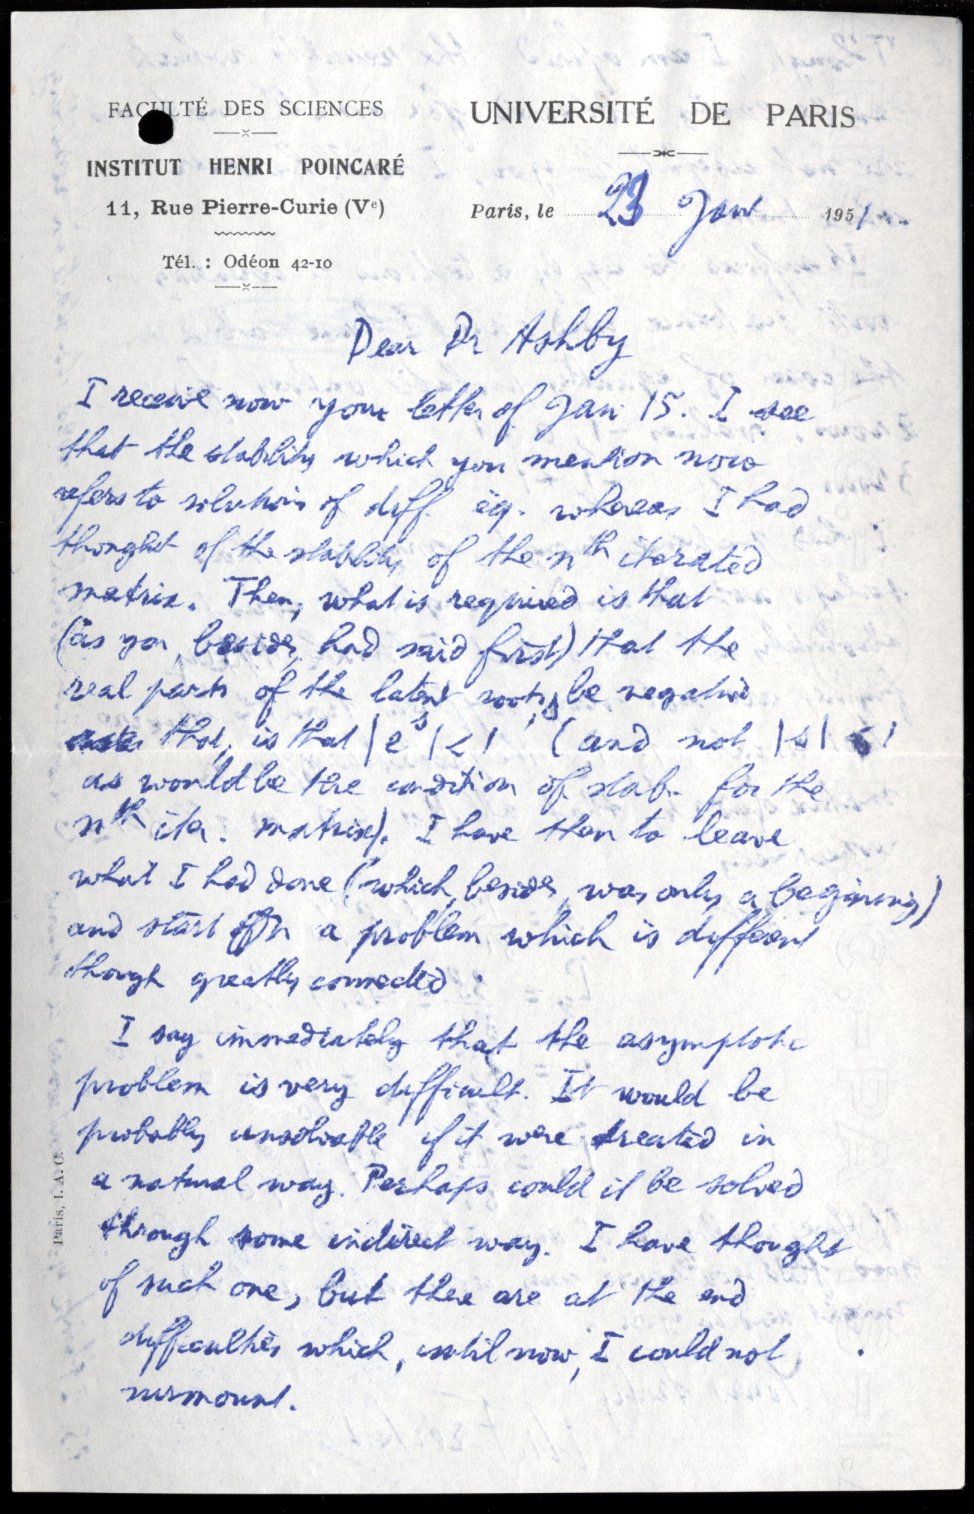 FACULTÉ DES SCIENCES
INSTITUT HENRI POINCARÉ
11, Rue Pierre-Curie (Ve)
Tél. : Odéon 42-10
UNIVERSITÉ DE PARIS
Paris, le 23 Jan 1951
Dear Dr Ashby
I receive now your letter of Jan 15. I see
that the stability which you mention now
refers to solutions of diff. eq. whereas I had
thought of the stability of the nth iterated
matrix. Then, what is required is that
(as you, besides, had said first) that the
real parts of the latent roots, s be negative
that, is that |e^s| < 1 (and not |s| < 1
as would be the condition of stab. for the
nth iter. matrix). I have then to leave
what I had done (which, besides, was only a beginning)
and start on a problem which is different
though greatly connected.
I say immediately that the asymptotic
problem is very difficult. It would be
probably unsolvable if it were treated in
a natural way. Perhaps could it be solved
through some indirect way. I have thought
of such one, but there are at the end
difficulties which, until now, I could not
surmount.
Paris, I. A. C.